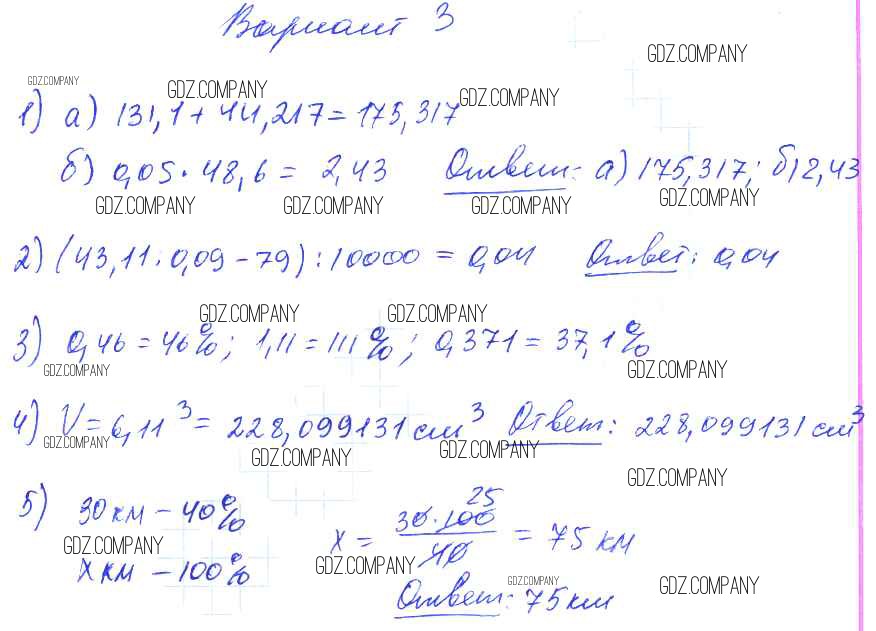 Вариант 3
GDZ.COMPANY
GDZ.COMPANY GDZ.COMPANY GDZ.COMPANY
1) а) 131,1 + 44,217 = 175,317
б) 0,05 · 48,6 = 2,43 Ответ: а) 175,317; б) 2,43
GDZ.COMPANY GDZ.COMPANY GDZ.COMPANY GDZ.COMPANY
2) (43,11 : 0,09 - 79) : 10000 = 0,04 Ответ: 0,04
GDZ.COMPANY GDZ.COMPANY
3) 0,46 = 46%; 1,11 = 111%; 0,371 = 37,1%
GDZ.COMPANY GDZ.COMPANY
4) V = 6,11³ = 228,099131 см³ Ответ: 228,099131 см³
GDZ.COMPANY GDZ.COMPANY GDZ.COMPANY
GDZ.COMPANY
5) 30 км - 40%
x км - 100%
GDZ.COMPANY
25
x = 30·100 / 40 = 75 км
GDZ.COMPANY
Ответ: 75 км
GDZ.COMPANY GDZ.COMPANY